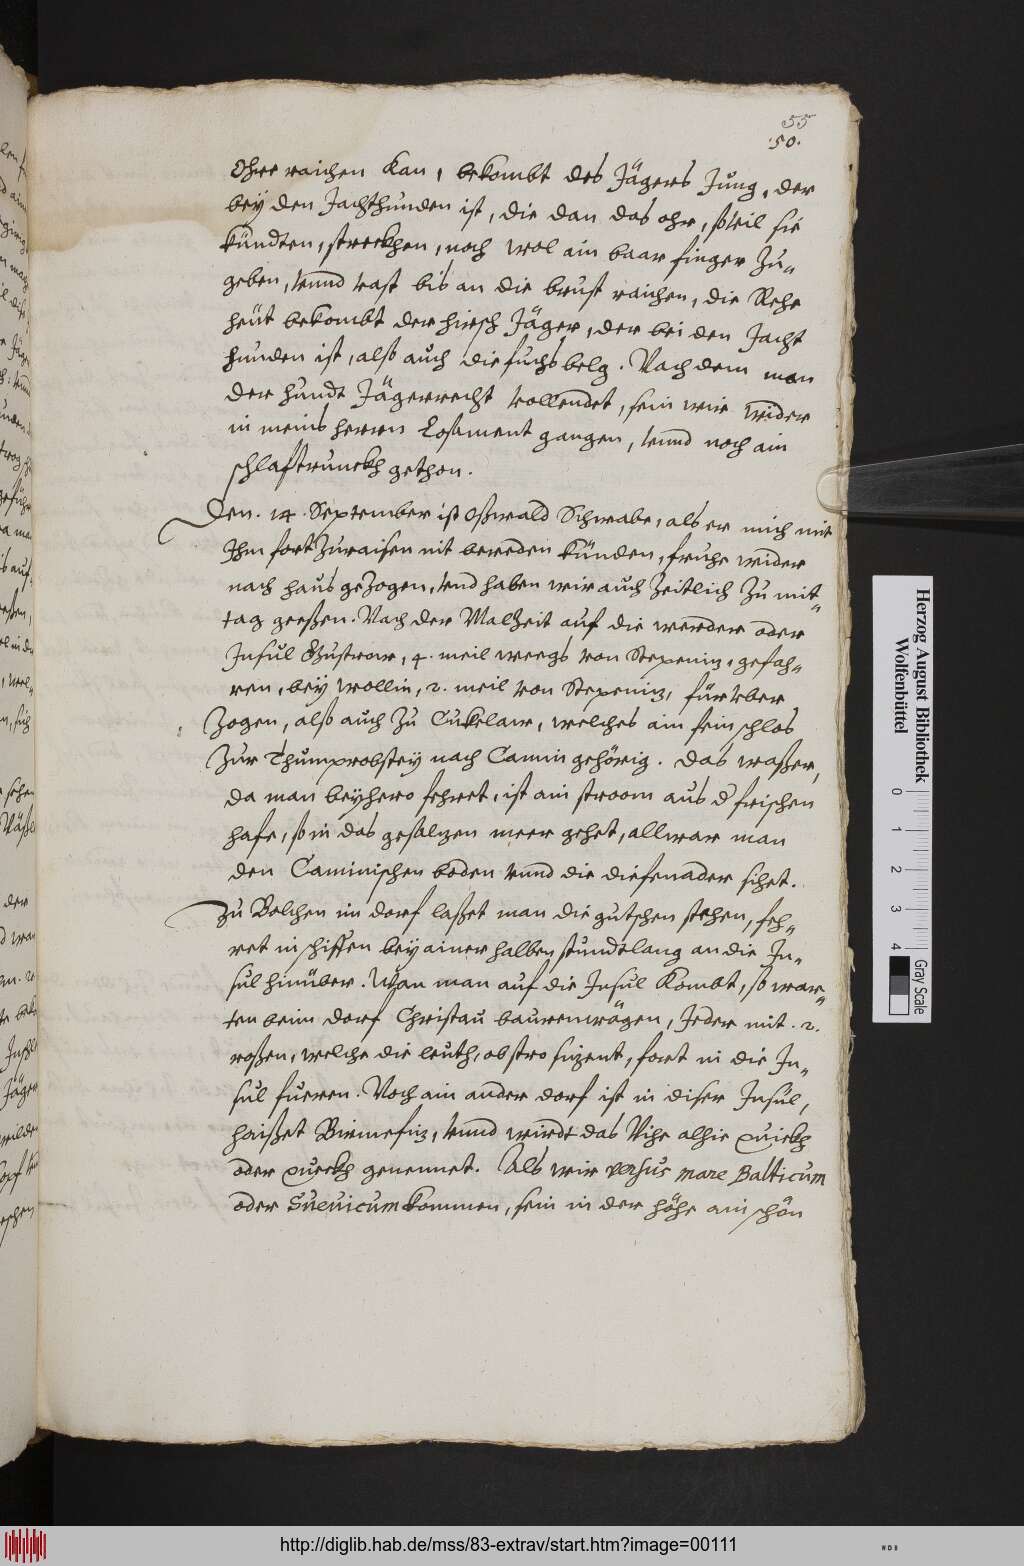 55
50.
Ohrr raichen kan, bekombt des Jägers Jung, der
bey den Jachthunden ist, die dan das ohr, souil sie
kündten, streckhen, noch wol ain baar finger zu-
geben, vnnd vast bis an die brust raichen, die Rehe
heüt bekombt der hirsch Jäger, der bei den Jacht
hunden ist, alß auch die fuchs belg. Nach dem man
der hundt Jägerrecht vollendet, sein wir wider
in meins herrn Losament gangen, vnnd noch ain
schlaftrunckh gethon.
Den. 14. September ist Oßwald Schwabe, als er mich mit
Ihm fort zuraisen nit bereden künden, fruhe wider
nach haus gezogen, vnd haben wir auch Zeitlich zu mit-
tag geeßen. Nach der Malzeit auf die werder oder
Insul Gustrow, 4. meil weegs von Stepeniz, gefah-
ren, bey Wollin, 2. meil von Stepeniz, fürüber
zogen, alß auch zu Cukelaw, welches ain fein schlos
zur Thumprobstey nach Camin gehörig. Das waßer,
da man beyhero fehret, ist ain stroom aus d' frischen
hafe, so in das gesalzen meer gehet, allwar man
den Caminischen boden vnnd die diefenader sihet.
Zu Bolchen im dorf laßet man die gutschen stehen, feh-
ret in schiffen bey ainer halben stundt lang an die In-
sul hinüber. Wan man auf die Insul kombt, so war-
ten beim dorf Christau baurenwägen, Jeder mit. 2.
roßen, welche die leuth, ob stro sizent, fort in die In-
sul fueren. Noch ain ander dorf ist in diser Insul,
haißet Birnefiz, vnnd wirdt das Vihe alhie quickh
oder queckh genennet. Als wir versus mare Balticum
oder Sueuicum kommen, sein in der höhe ain schön
Herzog August Bibliothek
Wolfenbüttel
0 1 2 3 4
Gray Scale
http://diglib.hab.de/mss/83-extrav/start.htm?image=00111